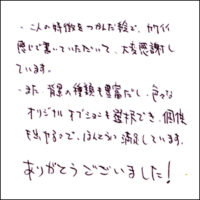 ・二人の特徴をつかんだ絵で、カワイイ
感じで書いていただいて、大変感謝し
ています。
・また、背景の種類も豊富だし、色々な
オリジナルオプションも選択でき、個性
も出せるので、ほんとうに満足しています。
ありがとうございました!